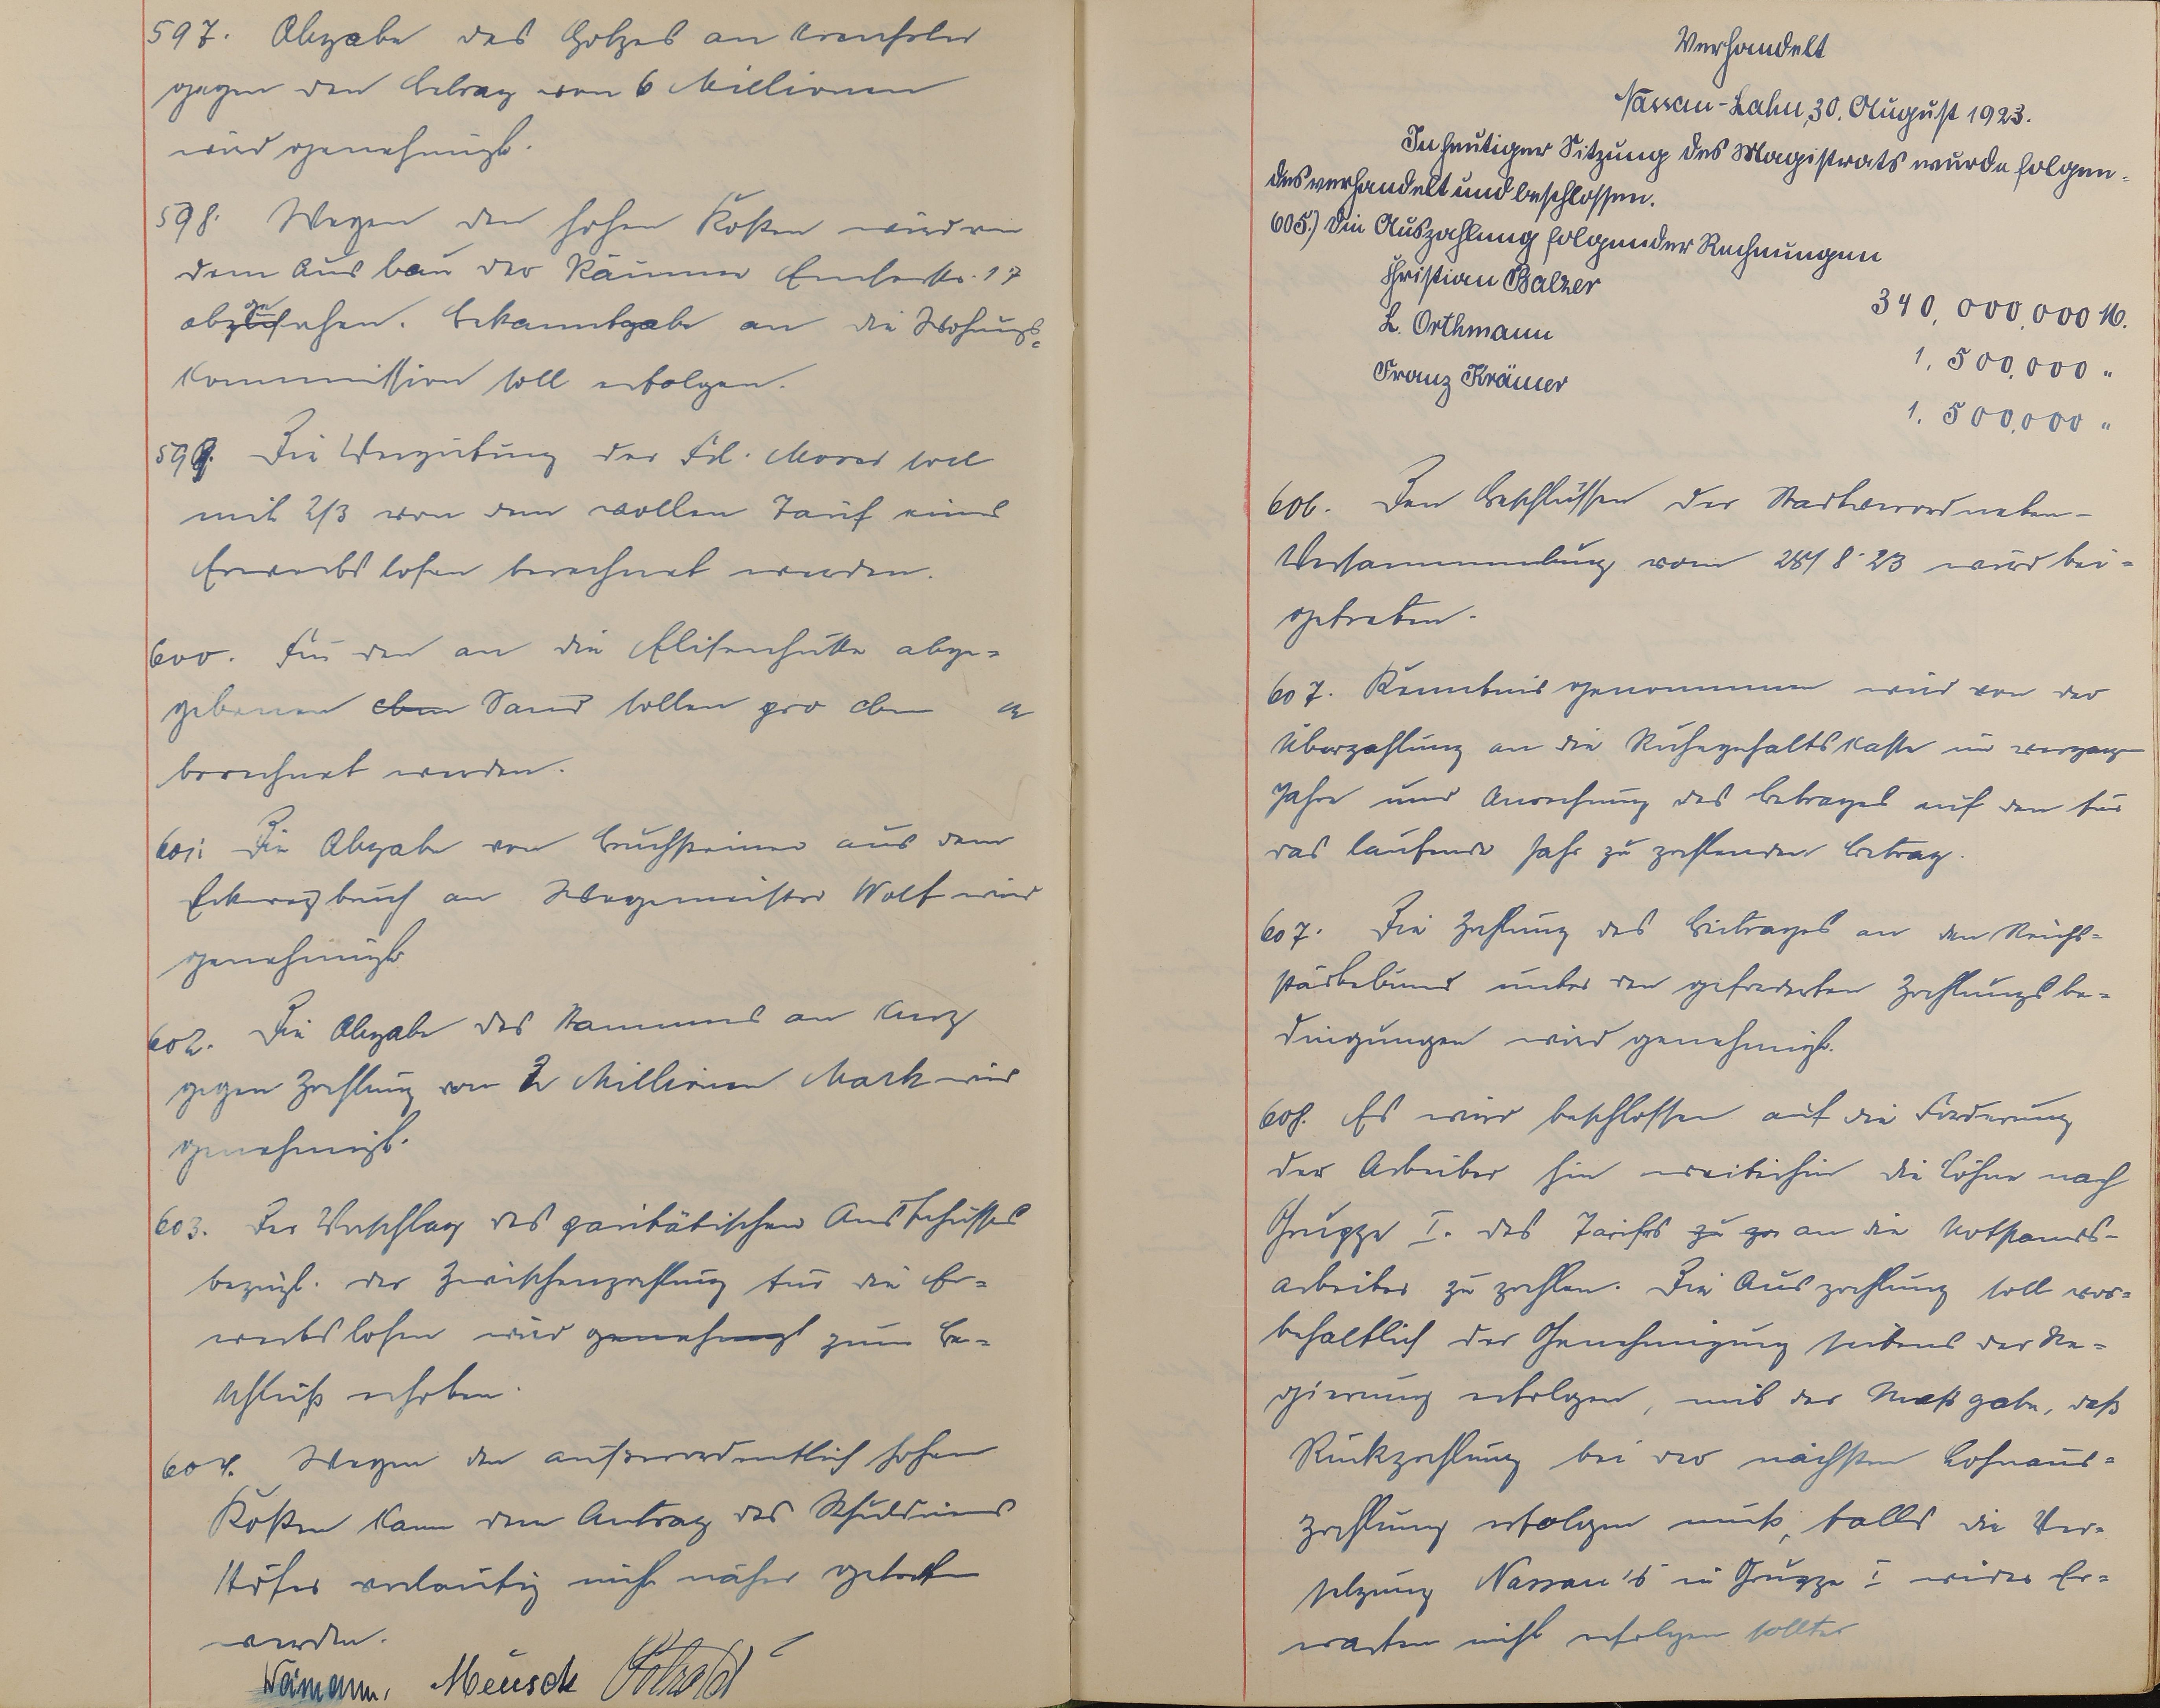 597. Abgabe des Holzes an
gegen den Betrag von 6 Millionen
wird genehmigt.
598. Wegen den hohen Kosten wird von
dem Ausbau der Räume Emserstr. 17
abgesehen. Bekanntgabe an die Wohngs=
Kommission soll erfolgen.
599. Die Vergütung der Frl. soll
mit 2/3 von dem vollen Tarif eines
Erwerbslosen berechnet werden.
600. Für den an die Elisenhütte abge=
gebenen cbm Sand sollen pro cbm M
berechnet werden.
601. Die Abgabe von Bruchsteinen aus dem
bruch an Wegemeister Wolf wird
genehmigt
602. Die Abgabe des Stammes an Kurz
gegen Zahlung von 2 Millionen Mark wird
genehmigt.
603. Der Vorschlag des paritätischen Ausschusses
bezügl. der Zwischenzahlung für die Er=
werbslosen wird genehmigt zum Be=
schluß erhoben.
604. Wegen den außerordentlich hohen
Kosten kann dem Antrag des Schuldieners
vorläufig nicht näher getreten
werden.
Meusch
Verhandelt
Nassau-Lahn, 30. August 1923.
In heutiger Sitzung des Magistrats wurde folgen=
des verhandelt und beschlossen.
605.) Die Auszahlung folgender Rechnungen
Christian Balzer 340,000,000 M.
L. Orthmann 1,500,000 "
Franz Krämer 1,500,000 "
606. Den Beschlüssen der Stadtverordneten-
Versammmlung vom 28/8 23 wird bei=
getreten.
607. Kenntnis genommen wird von der
Überzahlung an die Ruhegehaltskasse im vergang
Jahre und Anrechnung des Betrages auf den für
das laufende Jahr zu zahlenden Betrag.
607. Die Zahlung des Beitrages an den Reichs=
städtebund unter den geforderten Zahlungsbe=
dingungen wird genehmigt.
608. Es wird beschlossen auf die Forderung
der Arbeiter hin weiterhin die Löhne nach
Gruppe I. des Tarifes zu za an die Notstands-
arbeiter zu zahlen. Die Auszahlung soll vor=
behaltlich der Genehmigung seitens der Re=
gierung erfolgen, mit der Maßgabe, daß
Rückzahlung bei der nächsten Lohnaus=
zahlung erfolgen muß, falls die Ver=
setzung Nassau's in Gruppe I wider Er=
warten nicht erfolgen sollte